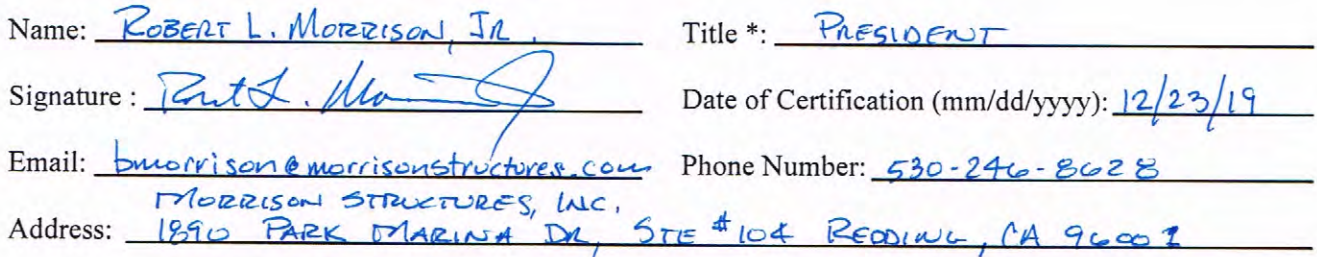 Name: ROBERT L. MORRISON, JR. Title *: PRESIDENT
Signature : Date of Certification (mm/dd/yyyy): 12/23/19
Email: bmorrison@morrisonstructures.com Phone Number: 530-246-8628
MORRISON STRUCTURES, INC.
Address: 1890 PARK MARINA DR, STE #104 REDDING, CA 96001